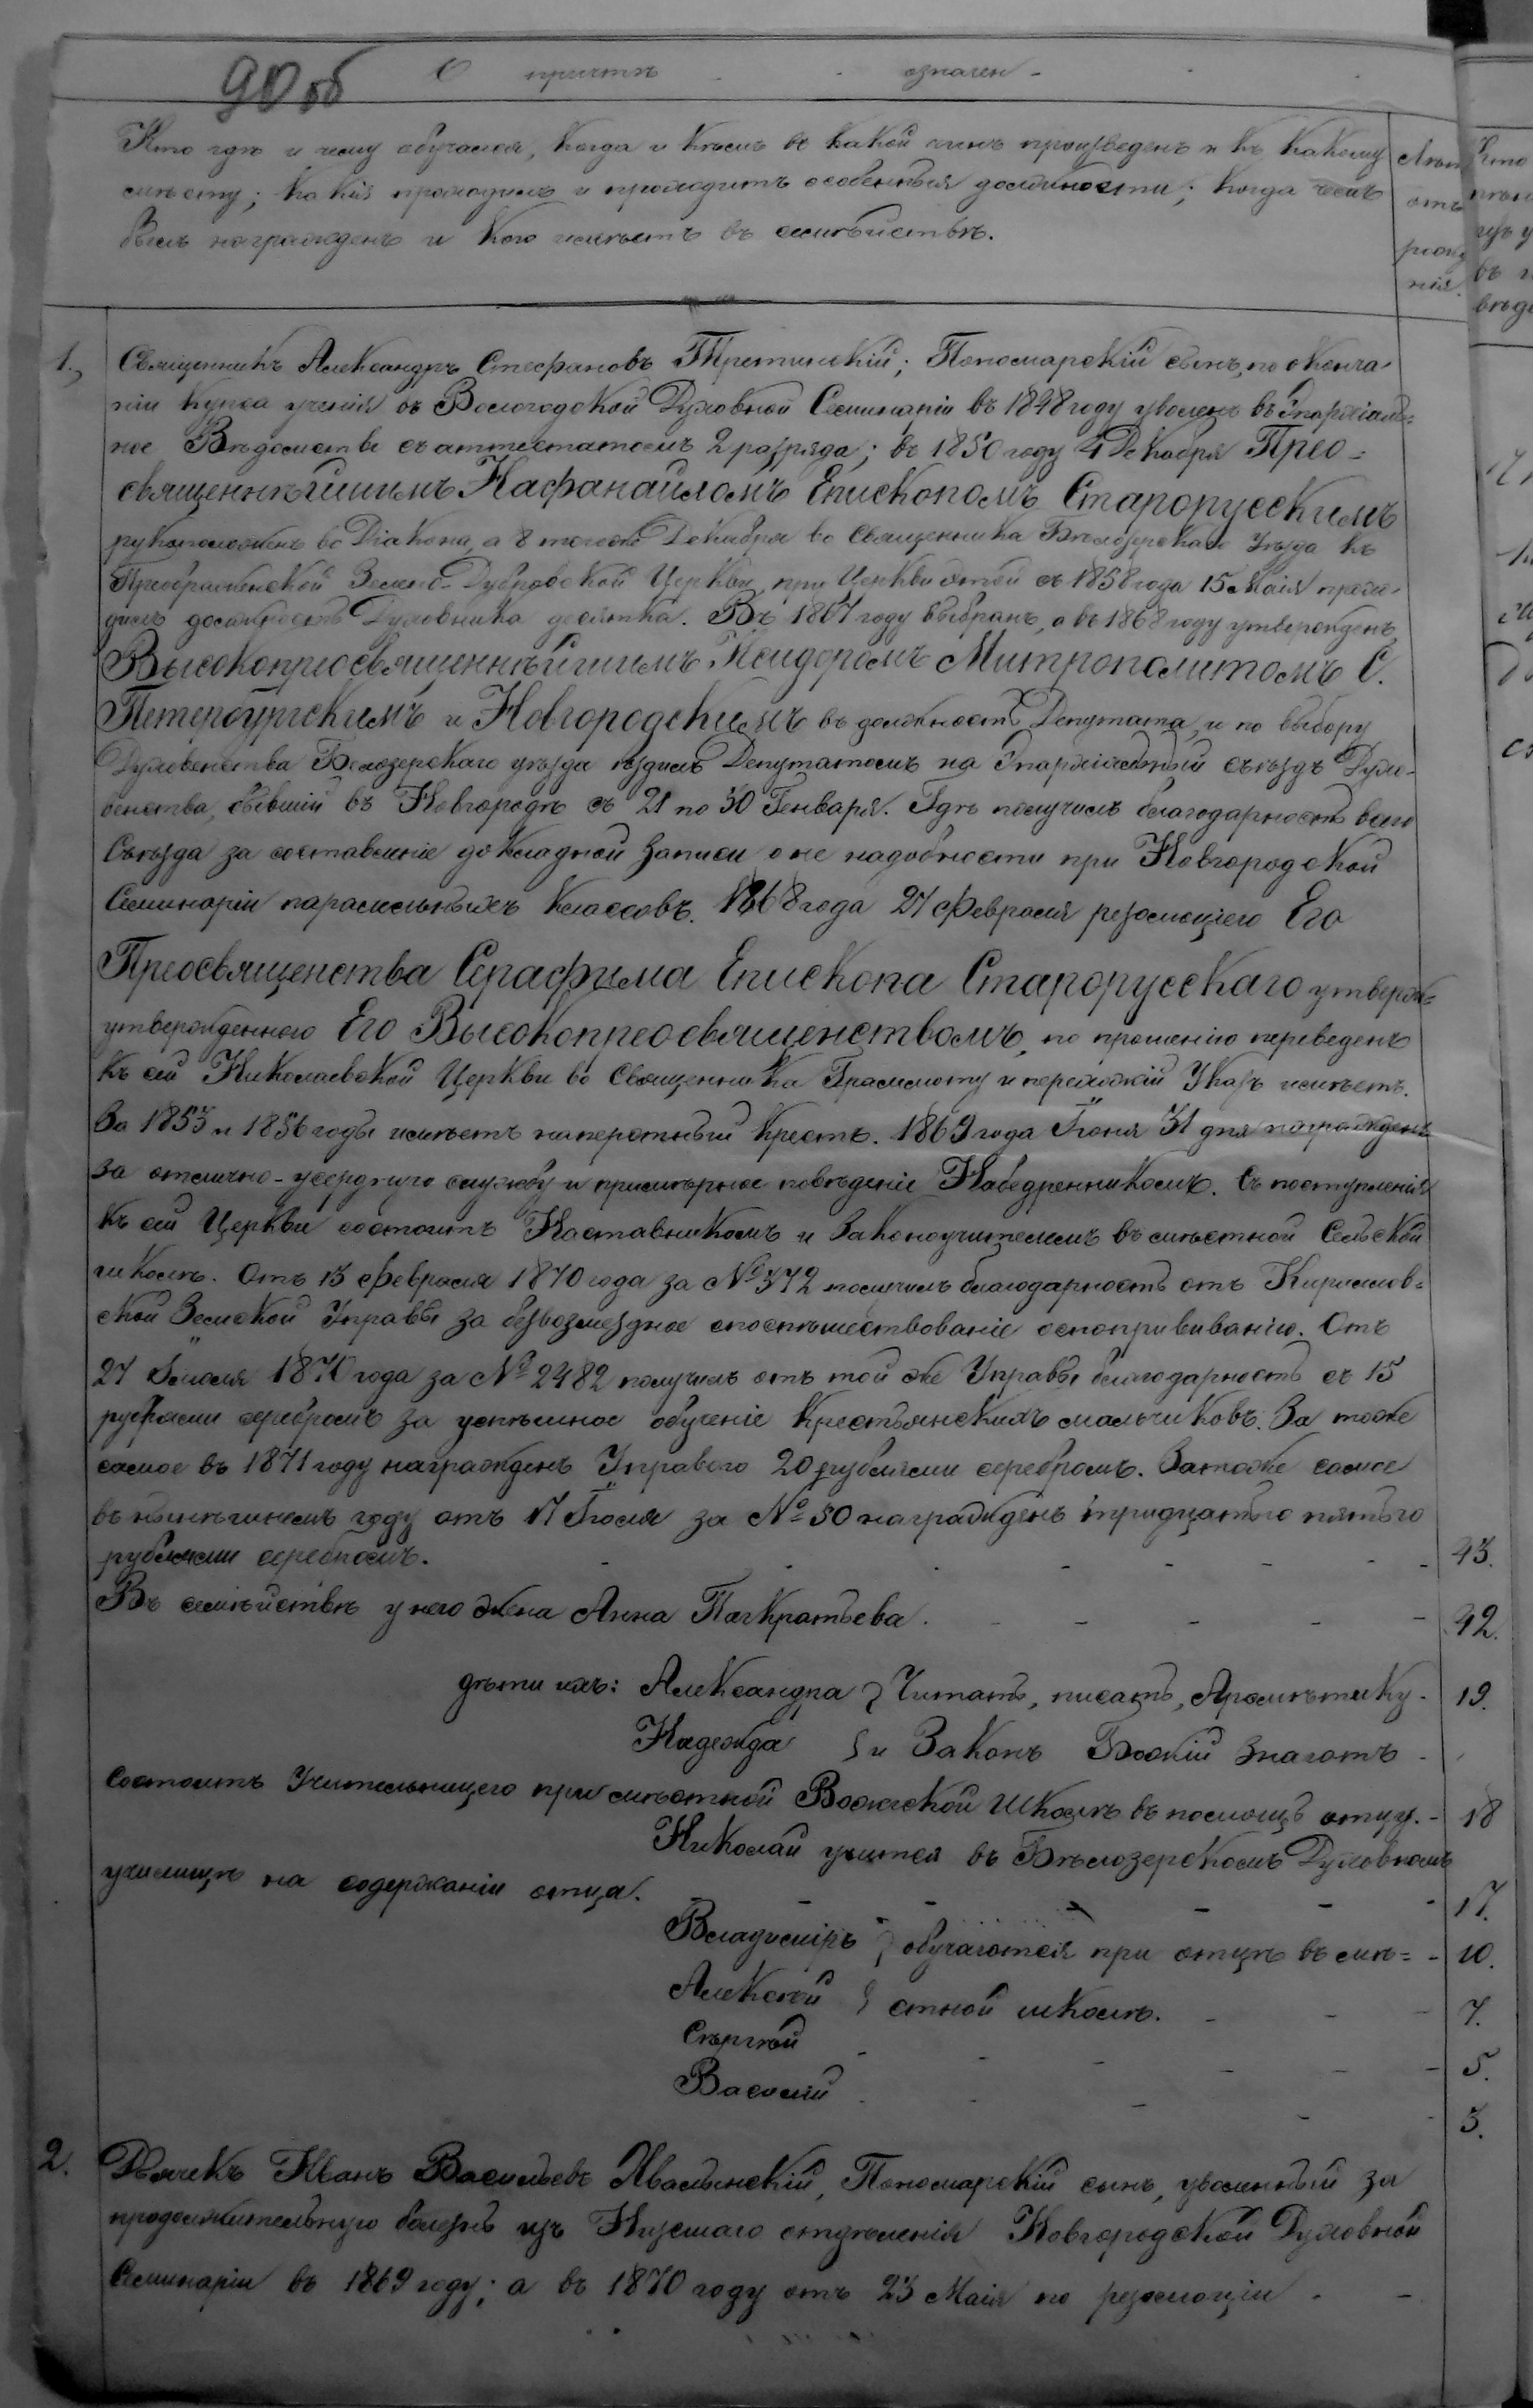 90 об
О причтѣ означен-
Кто гдѣ и чему обучался, когда и кѣмъ въ какой чинъ произведенъ и къ какому
мѣсту; какія проходилъ и проходитъ особенныя должности; когда чемъ
былъ награжденъ и кого имѣетъ въ семѣйствѣ.
Лѣт
отъ
рожд
нія.
1., Священникъ Александръ Стефановъ Третинскій; Пономарскій сынъ, по оконча-
ніи курса ученія въ Вологодской Духовной Семинаріи въ 1848 году уволенъ въ Епархіаль-
ное Вѣдомство съ аттестатомъ 2 разряда; въ 1850 году 4 Декабря Прео-
священнѣйшимъ Нафанаиломъ Епископомъ Старорусскимъ
рукоположенъ во Діакона, а 8 тогоже Декабря во Священника Бѣлозерскаго Уѣзда къ
Преображенской Зелено-Дубровской Церкви, при Церкви этой съ 1858 года 15 Маія прохо-
дилъ должность Духовника десятка. Въ 1867 году выбранъ, а въ 1868 году утвержденъ
Высокопреосвященнѣйшимъ Исидоромъ Митрополитомъ С.
Петербургскимъ и Новгородскимъ въ должность Депутата, и по выбору
Духовенства Белозерскаго уѣзда ѣздилъ Депутатомъ на Епархіальный съѣздъ Духо-
венства, бывшій въ Новгородѣ съ 21 по 30 Генваря. Гдѣ получилъ благодарность всего
Съѣзда за составленіе докладной записи о не надобности при Новгородской
Семинаріи паралельныхъ классовъ. 1868 года 27 февраля резолюціею Его
Преосвященства Серафима Епископа Старорусскаго утверж=
утвержденною Его Высокопреосвященствомъ, по прошенію переведенъ
къ сей Николаевской Церкви во Священника Грамоту и перехожій Указъ имѣетъ.
За 1853 и 1856 годы имѣетъ наперстный крестъ. 1869 года Іюня 31 дня награжденъ
за отлично-усердную службу и примѣрное повѣденіе Набедренникомъ. Съ поступленія
къ сей Церкви состоитъ Наставникомъ и Законоучителемъ въ мѣстной Сельской
школѣ. Отъ 13 февраля 1870 года за № 372 получилъ благодарность отъ Кириллов-
ской Земской Управы за безвозмездное споспѣшествованіе оспопрививанію. Отъ
27 Іюля 1870 года за № 2482 получилъ отъ той же Управы благодарность съ 15
рублями серебромъ за успѣшное обученіе крестьянскихъ мальчиковъ. За тоже
самое въ 1871 году награжденъ Управою 20 рублями серебромъ. Затоже самое
въ нынѣшнемъ году отъ 17 Іюля за № 50 награжденъ тридцатью пятью
рублями серебромъ. 43.
Въ семѣйствѣ у него жена Анна Панкратьева. 42.
дѣти ихъ: Александра } Читать, писать, Арѳмѣтику 19.
Надежда } и Законъ Божій знаютъ
состоитъ Учительницею при мѣстной Вожской Школѣ въ помощь отцу. 18
Николай учится въ Бѣлозерскомъ Духовномъ
училищѣ на содержаніи отца. 17.
Владиміръ } обучаются при отцѣ въ мѣ= 10.
Алексѣй } стной школѣ. 7.
Сѣргѣй 5.
Василій 3.
2. Дьячекъ Иванъ Васильевъ Хвалынскій, Пономарскій сынъ, уволенный за
продолжительную болезнь изъ Низшаго отдѣленія Новгородской Духовной
Семинаріи въ 1869 году; а въ 1870 году отъ 23 Маія по резолюціи